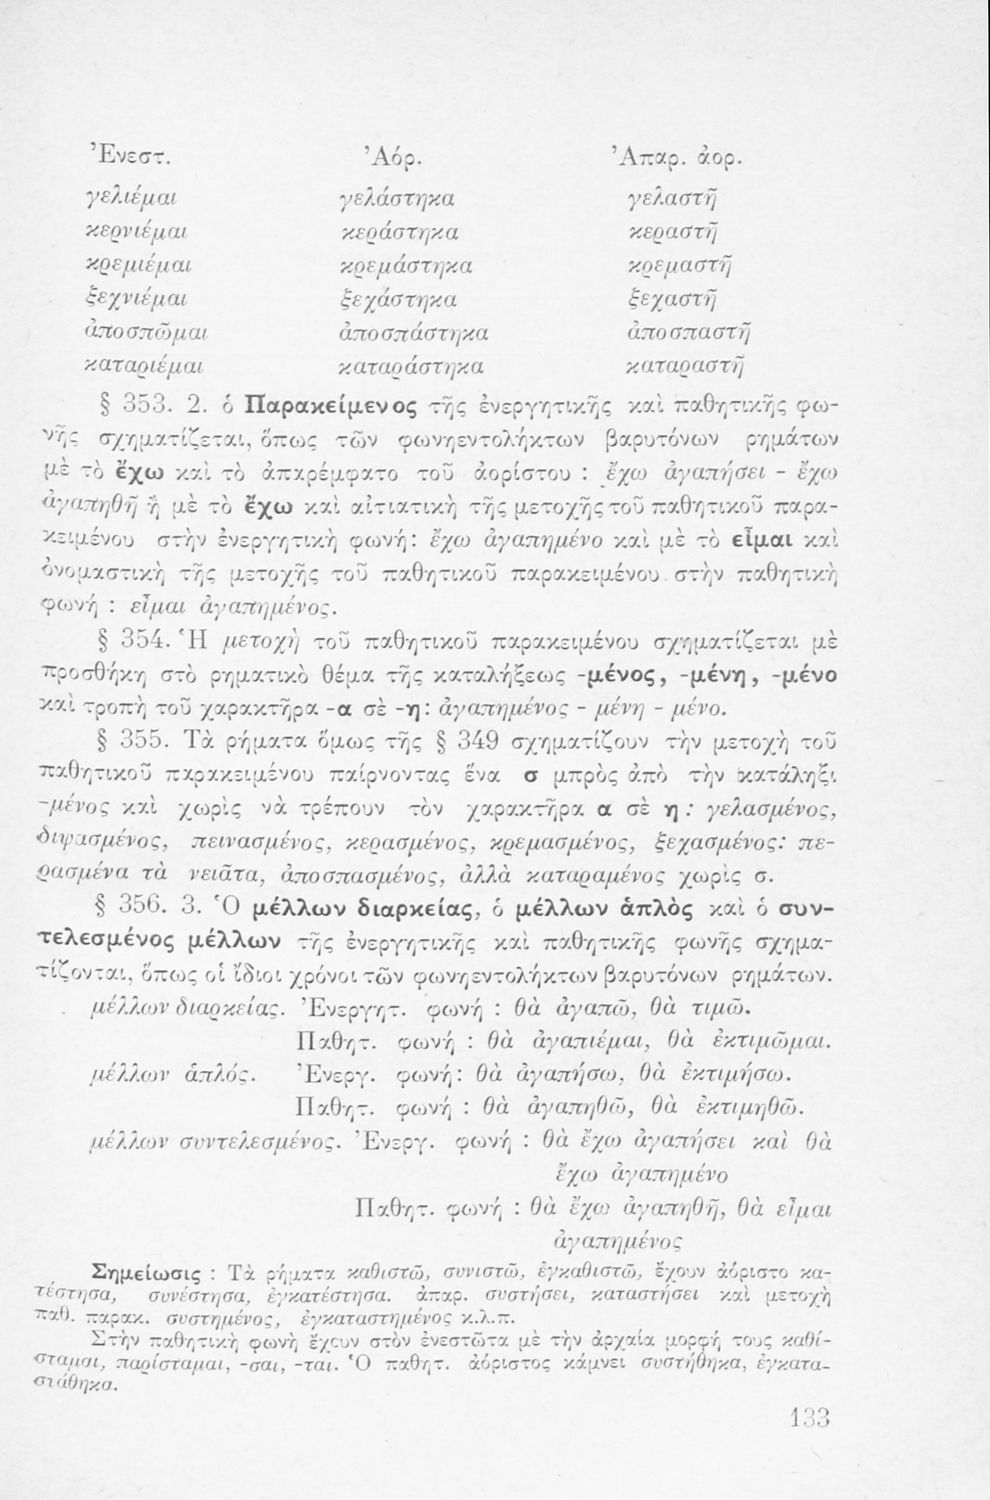 Ἐνεστ. Ἀόρ. Ἀπαρ. ἀορ.
γελιέμαι γελάστηκα γελαστῆ
κερνιέμαι κεράστηκα κεραστῆ
κρεμιέμαι κρεμάστηκα κρεμαστῆ
ξεχνιέμαι ξεχάστηκα ξεχαστῆ
ἀποσπῶμαι ἀποσπάστηκα ἀποσπαστῆ
καταριέμαι καταράστηκα καταραστῆ
§ 353. 2. ὁ Παρακείμενος τῆς ἐνεργητικῆς καὶ παθητικῆς φω-
νῆς σχηματίζεται, ὅπως τῶν φωνηεντολήκτων βαρυτόνων ρημάτων
μὲ τὸ ἔχω καὶ τὸ ἀπαρέμφατο τοῦ ἀορίστου : ἔχω ἀγαπήσει - ἔχω
ἀγαπηθῆ ἢ μὲ τὸ ἔχω καὶ αἰτιατικὴ τῆς μετοχῆς τοῦ παθητικοῦ παρα-
κειμένου στὴν ἐνεργητικὴ φωνή: ἔχω ἀγαπημένο καὶ μὲ τὸ εἶμαι καὶ
ὀνομαστικὴ τῆς μετοχῆς τοῦ παθητικοῦ παρακειμένου στὴν παθητικὴ
φωνή : εἶμαι ἀγαπημένος.
§ 354. Ἡ μετοχὴ τοῦ παθητικοῦ παρακειμένου σχηματίζεται μὲ
προσθήκη στὸ ρηματικὸ θέμα τῆς καταλήξεως -μένος, -μένη, -μένο
καὶ τροπὴ τοῦ χαρακτῆρα -α σὲ -η: ἀγαπημένος - μένη - μένο.
§ 355. Τὰ ρήματα ὅμως τῆς § 349 σχηματίζουν τὴν μετοχὴ τοῦ
παθητικοῦ παρακειμένου παίρνοντας ἕνα σ μπρὸς ἀπὸ τὴν κατάληξι
-μένος καὶ χωρὶς νὰ τρέπουν τὸν χαρακτῆρα α σὲ η : γελασμένος,
διψασμένος, πεινασμένος, κερασμένος, κρεμασμένος, ξεχασμένος: πε-
ρασμένα τὰ νειᾶτα, ἀποσπασμένος, ἀλλὰ καταραμένος χωρὶς σ.
§ 356. 3. Ὁ μέλλων διαρκείας, ὁ μέλλων ἁπλὸς καὶ ὁ συν-
τελεσμένος μέλλων τῆς ἐνεργητικῆς καὶ παθητικῆς φωνῆς σχημα-
τίζονται, ὅπως οἱ ἴδιοι χρόνοι τῶν φωνηεντολήκτων βαρυτόνων ρημάτων.
μέλλων διαρκείας. Ἐνεργητ. φωνή : θὰ ἀγαπῶ, θὰ τιμῶ.
Παθητ. φωνή : θὰ ἀγαπιέμαι, θὰ ἐκτιμῶμαι.
μέλλων ἁπλός. Ἐνεργ. φωνή: θὰ ἀγαπήσω, θὰ ἐκτιμήσω.
Παθητ. φωνή : θὰ ἀγαπηθῶ, θὰ ἐκτιμηθῶ.
μέλλων συντελεσμένος. Ἐνεργ. φωνή : θὰ ἔχω ἀγαπήσει καὶ θὰ
ἔχω ἀγαπημένο
Παθητ. φωνή : θὰ ἔχω ἀγαπηθῆ, θὰ εἶμαι
ἀγαπημένος
Σημείωσις : Τὰ ρήματα καθιστῶ, συνιστῶ, ἐγκαθιστῶ, ἔχουν ἀόριστο κα-
τέστησα, συνέστησα, ἐγκατέστησα. ἀπαρ. συστήσει, καταστήσει καὶ μετοχὴ
παθ. παρακ. συστημένος, ἐγκαταστημένος κ.λ.π.
Στὴν παθητικὴ φωνὴ ἔχουν στὸν ἐνεστῶτα μὲ τὴν ἀρχαία μορφή τους καθί-
σταμαι, παρίσταμαι, -σαι, -ται. Ὁ παθητ. ἀόριστος κάμνει συστήθηκα, ἐγκατα-
στάθηκα.
133